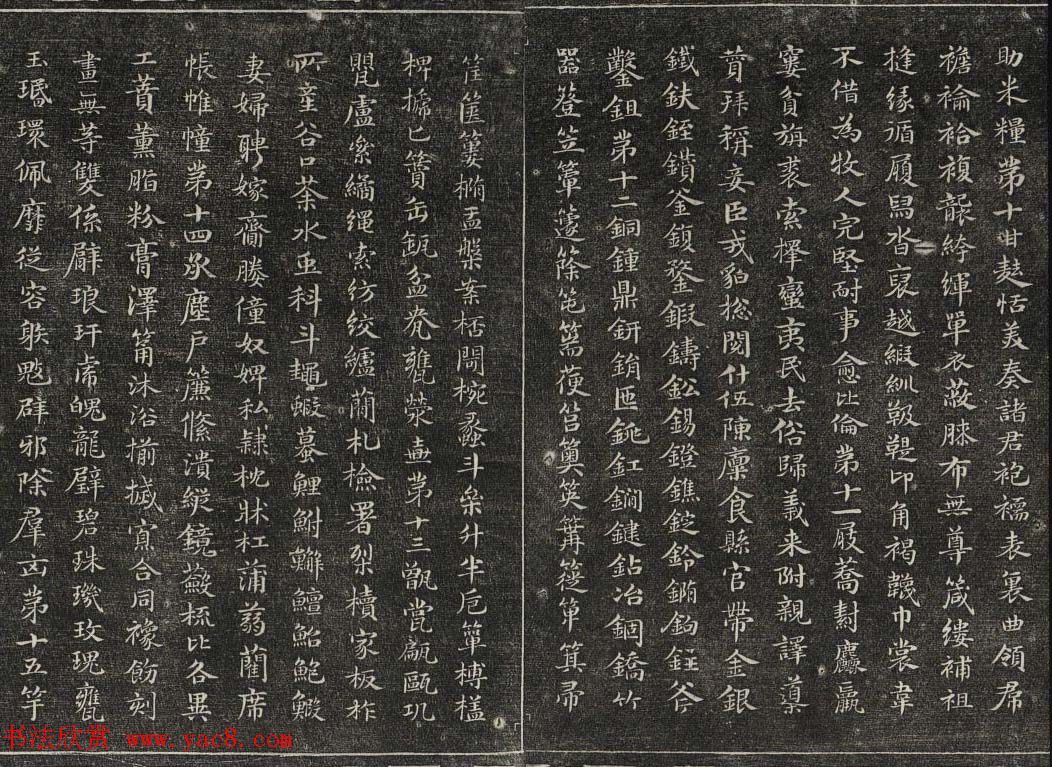 助米糧第十甘麮恬美奏諸君袍襦表裏曲領帬
襜褕袷複褺袴褌單衣蔽膝布無尊箴縷補袒
縫緣循履舄沓裒越緞紃靸鞮卬角褐韤巾裳韋
不借為牧人完堅耐事愈比倫第十一屐蕎麤羸
窶貧旃裘索擇蠻夷民去俗歸義来附親譯導
贊拜稱妾臣戎貊揔閱什伍陳廩食縣官帶金銀
鐵鈇銍鑽釜鍑鍪鍛鑄鈆錫鐙鐎錠鈴鉤斧
鑿鉏第十二銅鍾鼎鈃鋗匜銚釭鐧鍵鉆冶錮鐈竹
器簦笠簟籧篨笔篅筥篝箅箕帚
筐篋簍橢盂槃案桮閜椀蠡斗參升半卮簞榑榼
椑榹匕籫缶缾盆甕滎壺第十三甑甂甌
甖盧絫繘繩索紡絞纑蕳札檢署槧櫝家板柞
所產谷口荼水虫科斗鼃蝦蟇鯉鮒鱣鮐鮑鰕
妻婦聘嫁齎媵僮奴婢私隸枕牀杠蒲蒻藺席
帳帷幢第十四承塵戶簾絛潰縱鏡籢梳比各異
工蕡薰脂粉膏澤筩沐浴揃搣寡合同襐飭刻
畫無等雙係臂琅玕虎魄龍璧碧珠璣玫瑰甕
玉瑉環佩靡從容射魃辟邪除羣凶第十五竽
书法欣赏 www.yac8.com